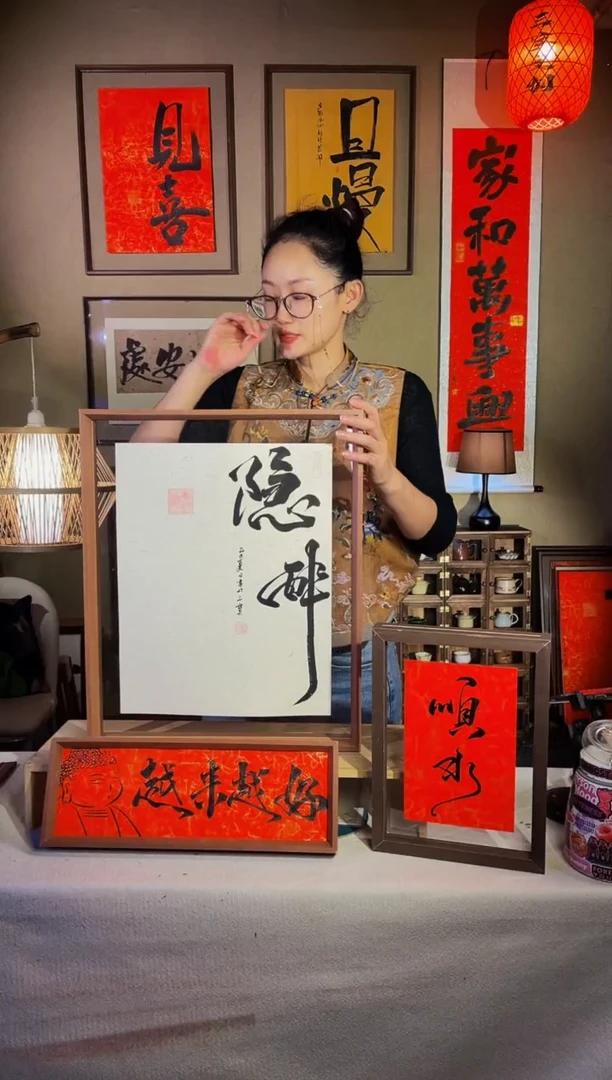 見喜
且慢
家和萬事興
處安
隐醉
越来越好
順水